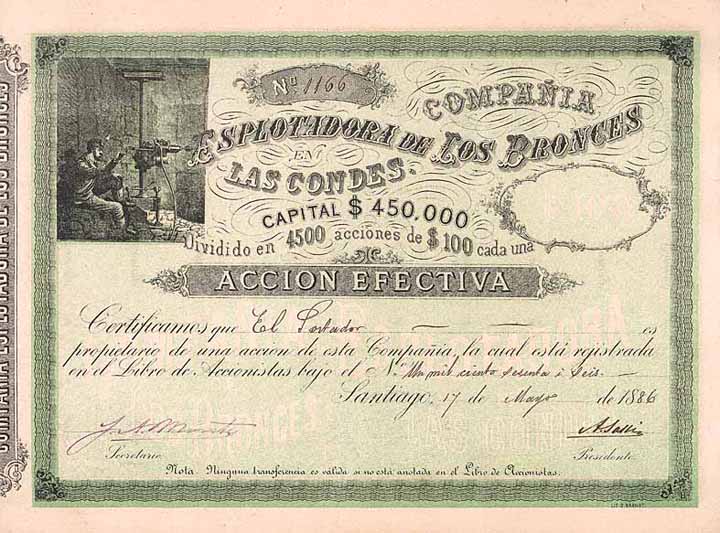 COMPAÑIA ESPLOTADORA DE LOS BRONCES
No 1166
COMPAÑIA
ESPLOTADORA DE LOS BRONCES
EN
LAS CONDES.
CAPITAL $ 450.000
Dividido en 4500 acciones de $ 100 cada una
ACCION EFECTIVA
Certificamos que El Portador es
propietario de una accion de esta Compañia, la cual está rejistrada
en el Libro de Accionistas bajo el N.º Un mil ciento sesenta i seis.
Santiago, 17 de Mayo de 1886
Secretario
Presidente
Nota. Ninguna transferencia es válida si no está anotada en el Libro de Accionistas.